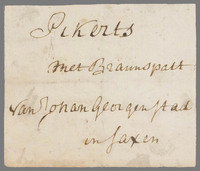 Pikerts
met Braunspatt
van Johan Georgen stad
in saxen